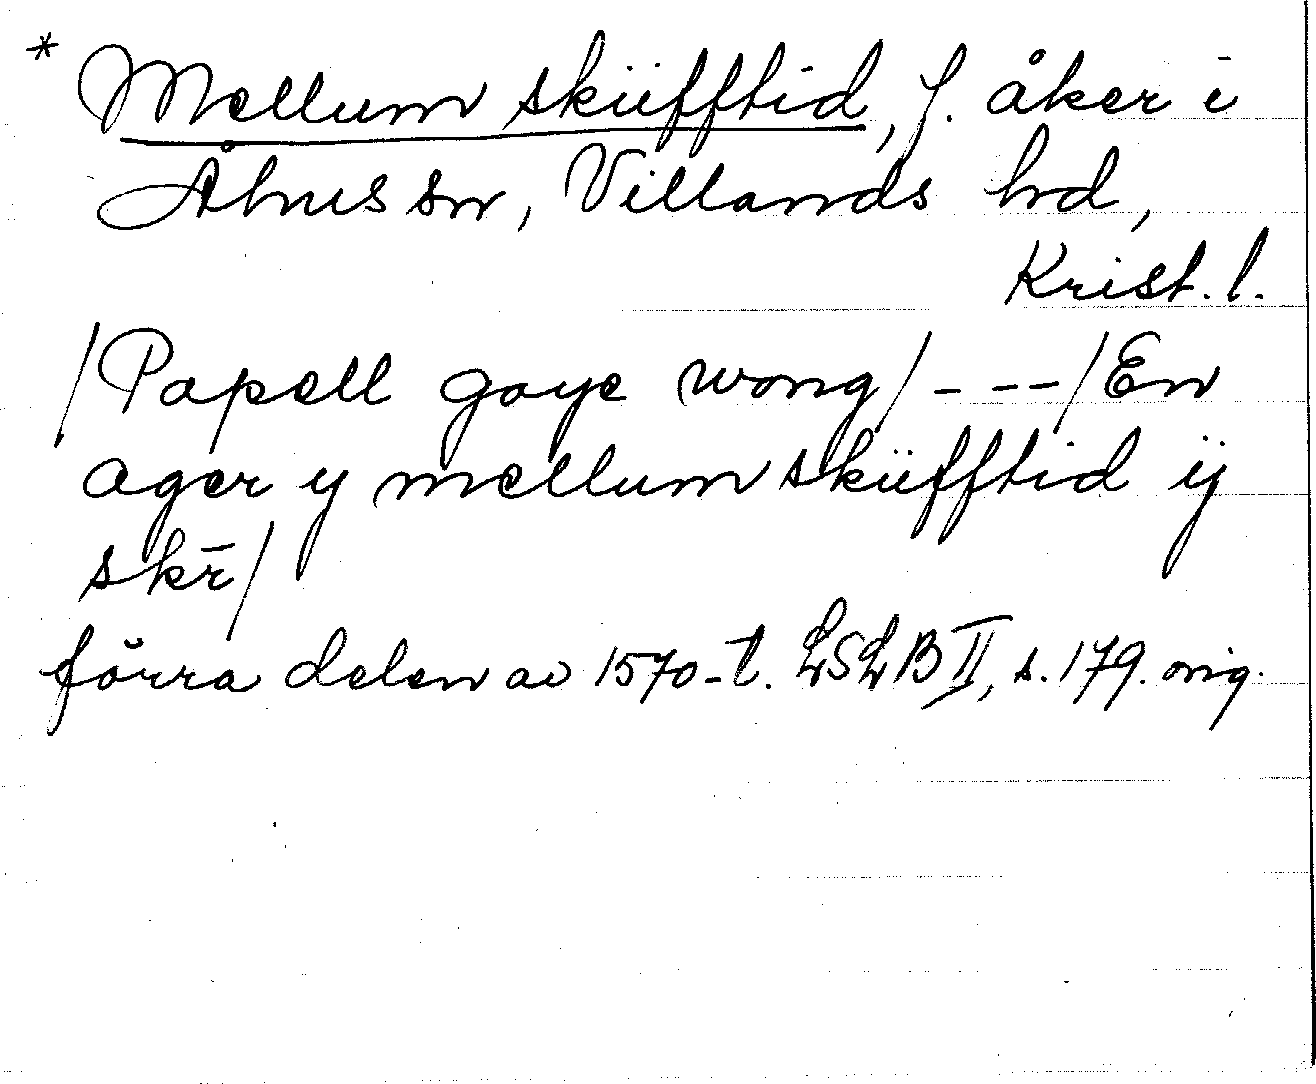 * Mellum sküfftid, f. åker i
Åhus sn, Villands hd,
Krist. l.
/Papell gaye wong/ - - - /En
ager y mellum sküfftid ÿ
skr̄/
förra delen av 1570-t. LSLB II, s. 179. orig.